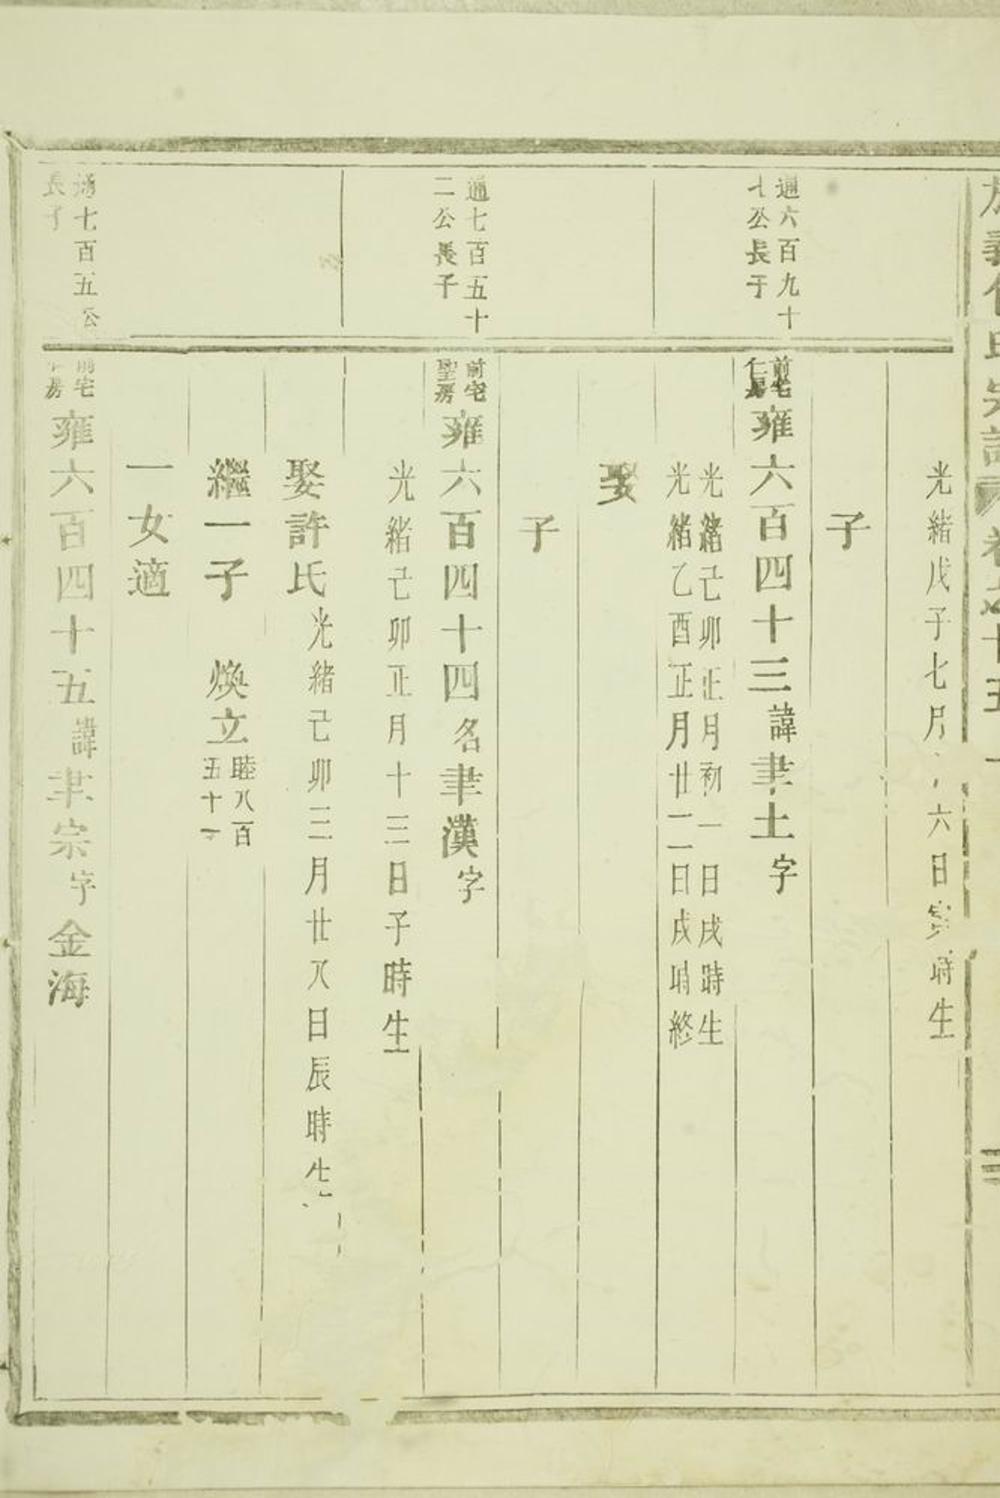 光緒戊子七月六日寅時生
子
通六百九十
七公長子
前宅
仁房
雍六百四十三諱聿土字
光緒己卯正月初一日戌時生
光緒乙酉正月廿二日戌時終
娶
子
通七百五十
二公長子
前宅
聖房
雍六百四十四名聿漢字
光緒己卯正月十三日子時生
娶許氏光緒己卯三月廿八日辰時生
繼一子 煥立睦八百
五十一
一女適
通七百五公
長子
前宅
房
雍六百四十五諱聿宗字金海